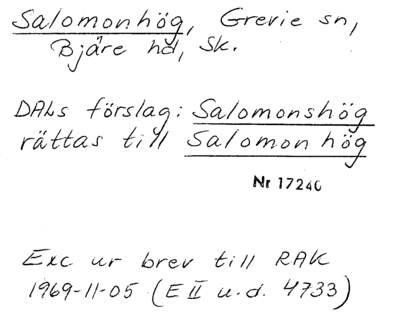 Salomonhög, Grevie sn,
Bjäre hd, Sk.
DALs förslag: Salomonshög
rättas till Salomon hög
Nr 17240
Exc ur brev till RAK
1969-11-05 (E II u.d. 4733)